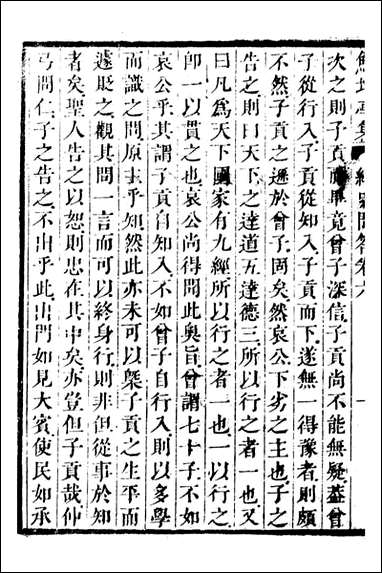 鮚埼亭集 經史問答卷六
次之則子貢而畢竟曾子深信子貢尚不能無疑葢曾
子從行入子貢從知入子貢而下遂無一得豫者則頗
不然子貢之遜於曾子固矣然哀公下劣之主也子之
告之則曰天下之達道五達德三所以行之者一也又
曰凡爲天下國家有九經所以行之者一也一以行之
卽一以貫之也哀公尚得聞此奥旨曾謂七十子不如
哀公乎其謂子貢自知入不如曾子自行入則以多學
而識之問原主乎知然此亦未可以槩子貢之生平而
遽貶之觀其問一言而可以終身行則非但從事於知
者矣聖人告之以恕則忠在其中矣亦豈但子貢哉仲
弓問仁子之告之不出乎此出門如見大賓使民如承